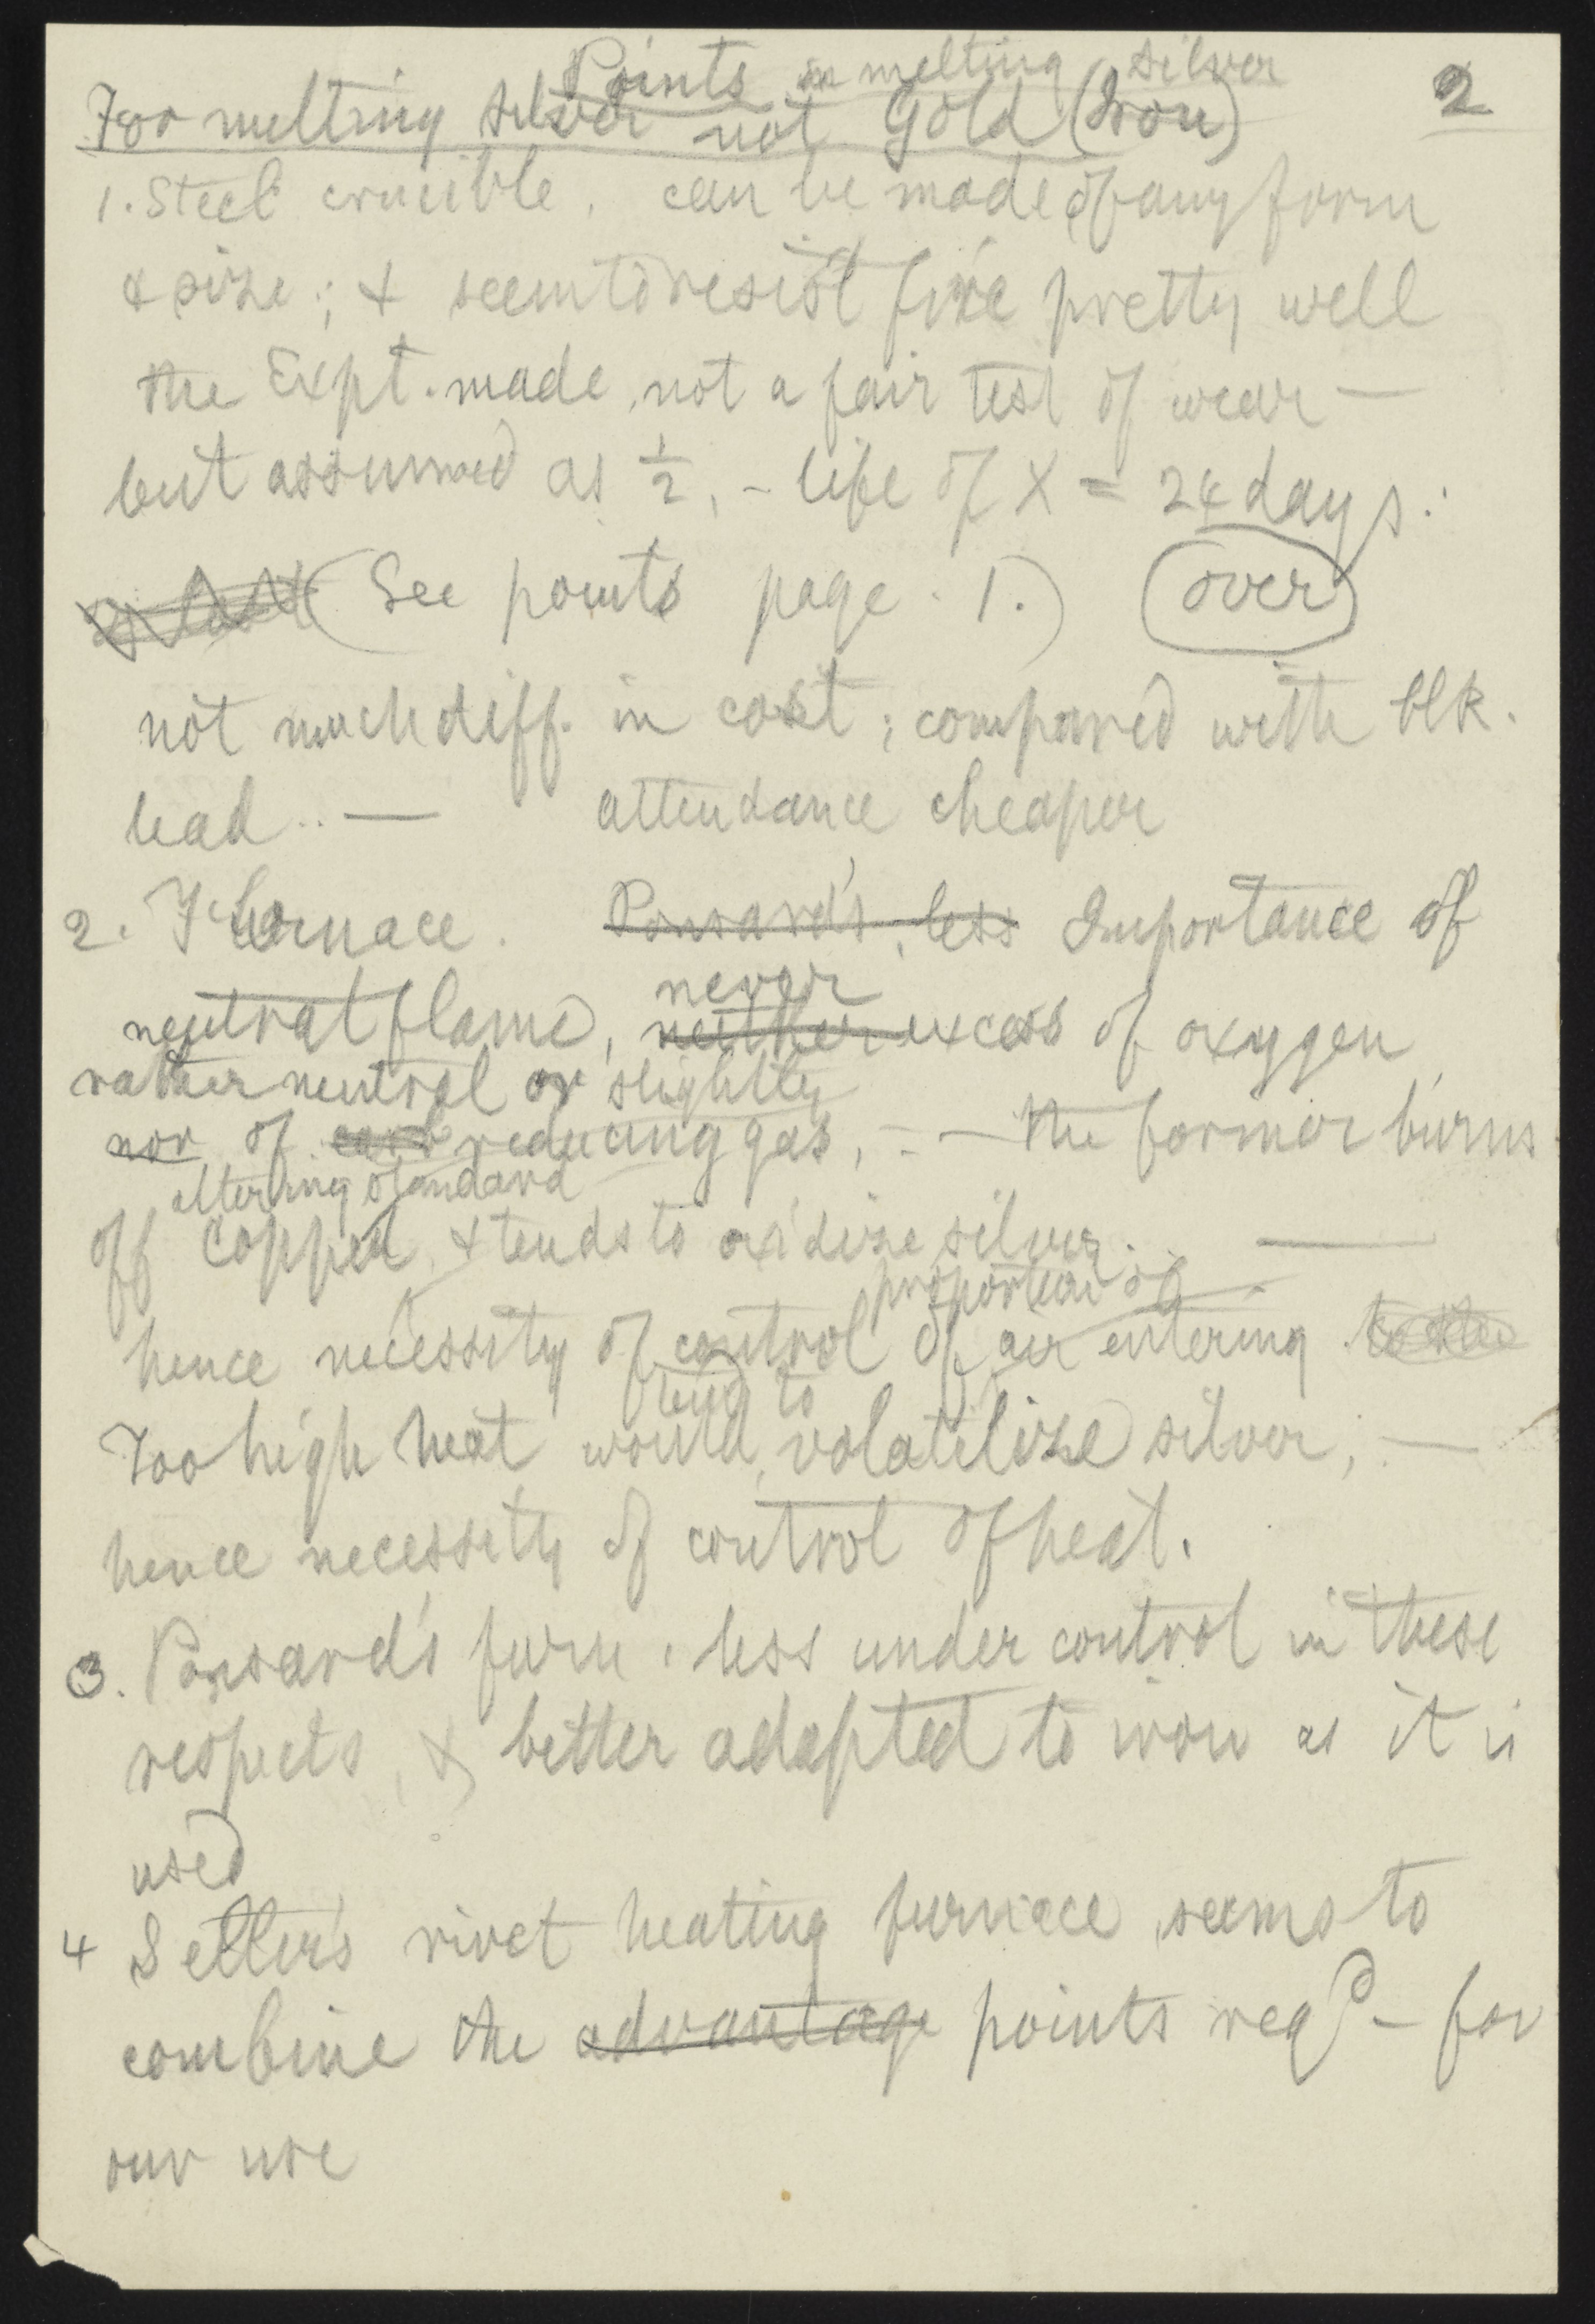 Points in melting silver
2
For melting silver not Gold (Iron)
1. Steel crucible, can be made of any form
& size; & seem to resist fire pretty well
the Expt. made, not a fair test of wear —
but assumed as ½, - life of X = 24 days.
(See points page 1.) over
not much diff. in cost; compared with blk.
lead.. — attendance cheaper
2. Furnace. Ponsard's, less Importance of
never
neutral flame, neither excess of oxygen,
rather neutral or slightly
nor of carb reducing gas, - — the former burns
altering standard
off copper, & tends to oxidize silver. —
proportion of
hence necessity of control of air entering to the
tend to
Too high heat would, volatilize silver, —
hence necessity of control of heat.
3. Ponsard's furn. less under control in these
respects, & better adapted to iron as it is
used
4 Seller's rivet heating furnace seems to
combine the advantage points reqd - for
our use